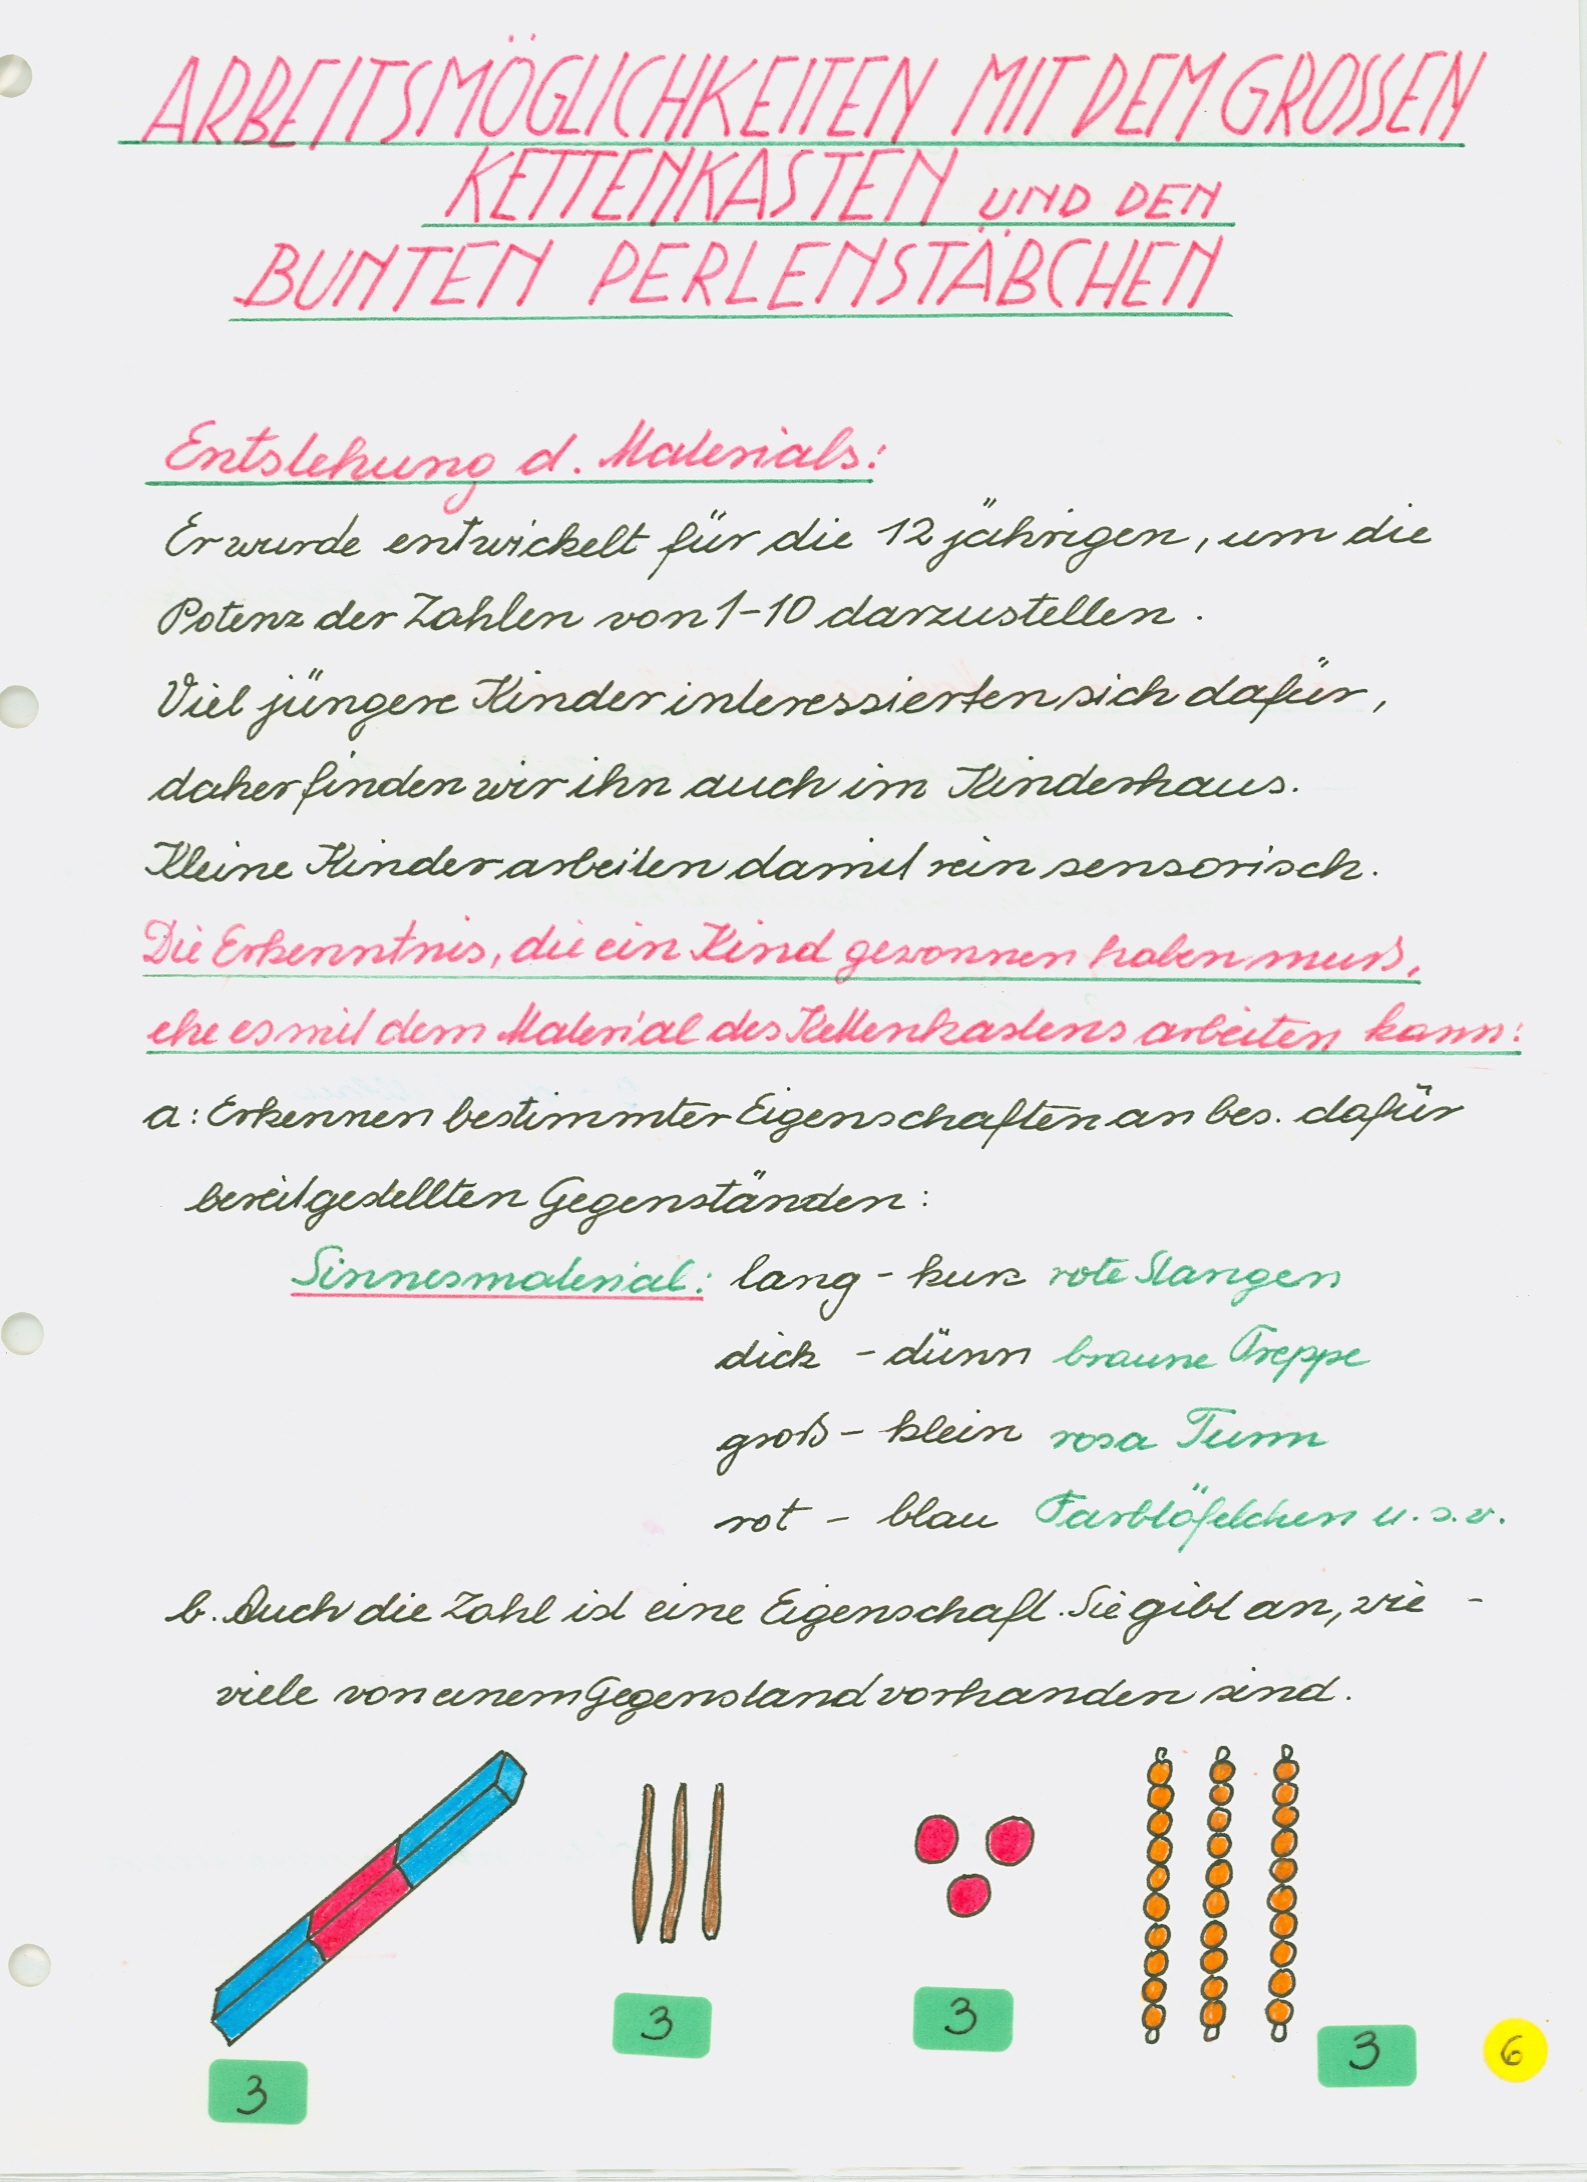 ARBEITSMÖGLICHKEITEN MIT DEM GROSSEN
KETTENKASTEN UND DEN
BUNTEN PERLENSTÄBCHEN
Entstehung d. Materials:
Er wurde entwickelt für die 12 jährigen, um die
Potenz der Zahlen von 1-10 darzustellen.
Viel jüngere Kinder interessierten sich dafür,
daher finden wir ihn auch im Kinderhaus.
Kleine Kinder arbeiten damit rein sensorisch.
Die Erkenntnis, die ein Kind gewonnen haben muß,
ehe es mit dem Material des Kettenkastens arbeiten kann:
a: Erkennen bestimmter Eigenschaften an bes. dafür
bereitgestellten Gegenständen:
Sinnesmaterial: lang - kurz rote Stangen
dick - dünn braune Treppe
groß - klein rosa Turm
rot - blau Farbtäfelchen u.s.w.
b. Auch die Zahl ist eine Eigenschaft. Sie gibt an, wie -
viele von einem Gegenstand vorhanden sind.
3
3
3
3
6